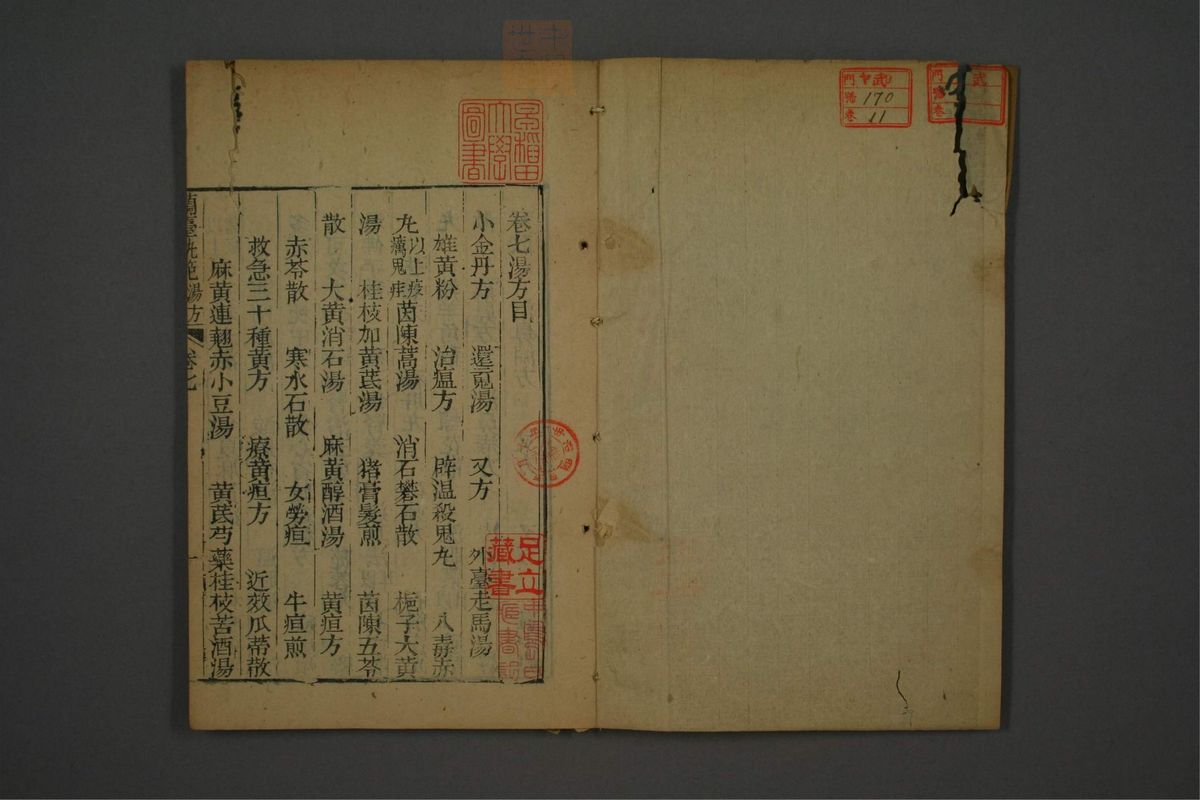 卷七湯方目
小金丹方 還䰟湯 又方 外臺走馬湯
雄黃粉 治瘟方 辟温殺鬼丸 八毒赤
丸 以上疫癘鬼疰 茵陳蒿湯 消石礬石散 梔子大黃
湯 桂枝加黃芪湯 猪膏髮煎 茵陳五苓
散 大黃消石湯 麻黃醇酒湯 黃疸方
赤苓散 寒水石散 女勞疸 牛疸煎
救急三十種黃方 療黃疸方 近效瓜蒂散
麻黃連翹赤小豆湯 黃芪芍藥桂枝苦酒湯
蘭臺軌範湯方 卷七 一
早稻田大學圖書
足立藏書
武
門
號 170
卷 11
武
門
號
卷